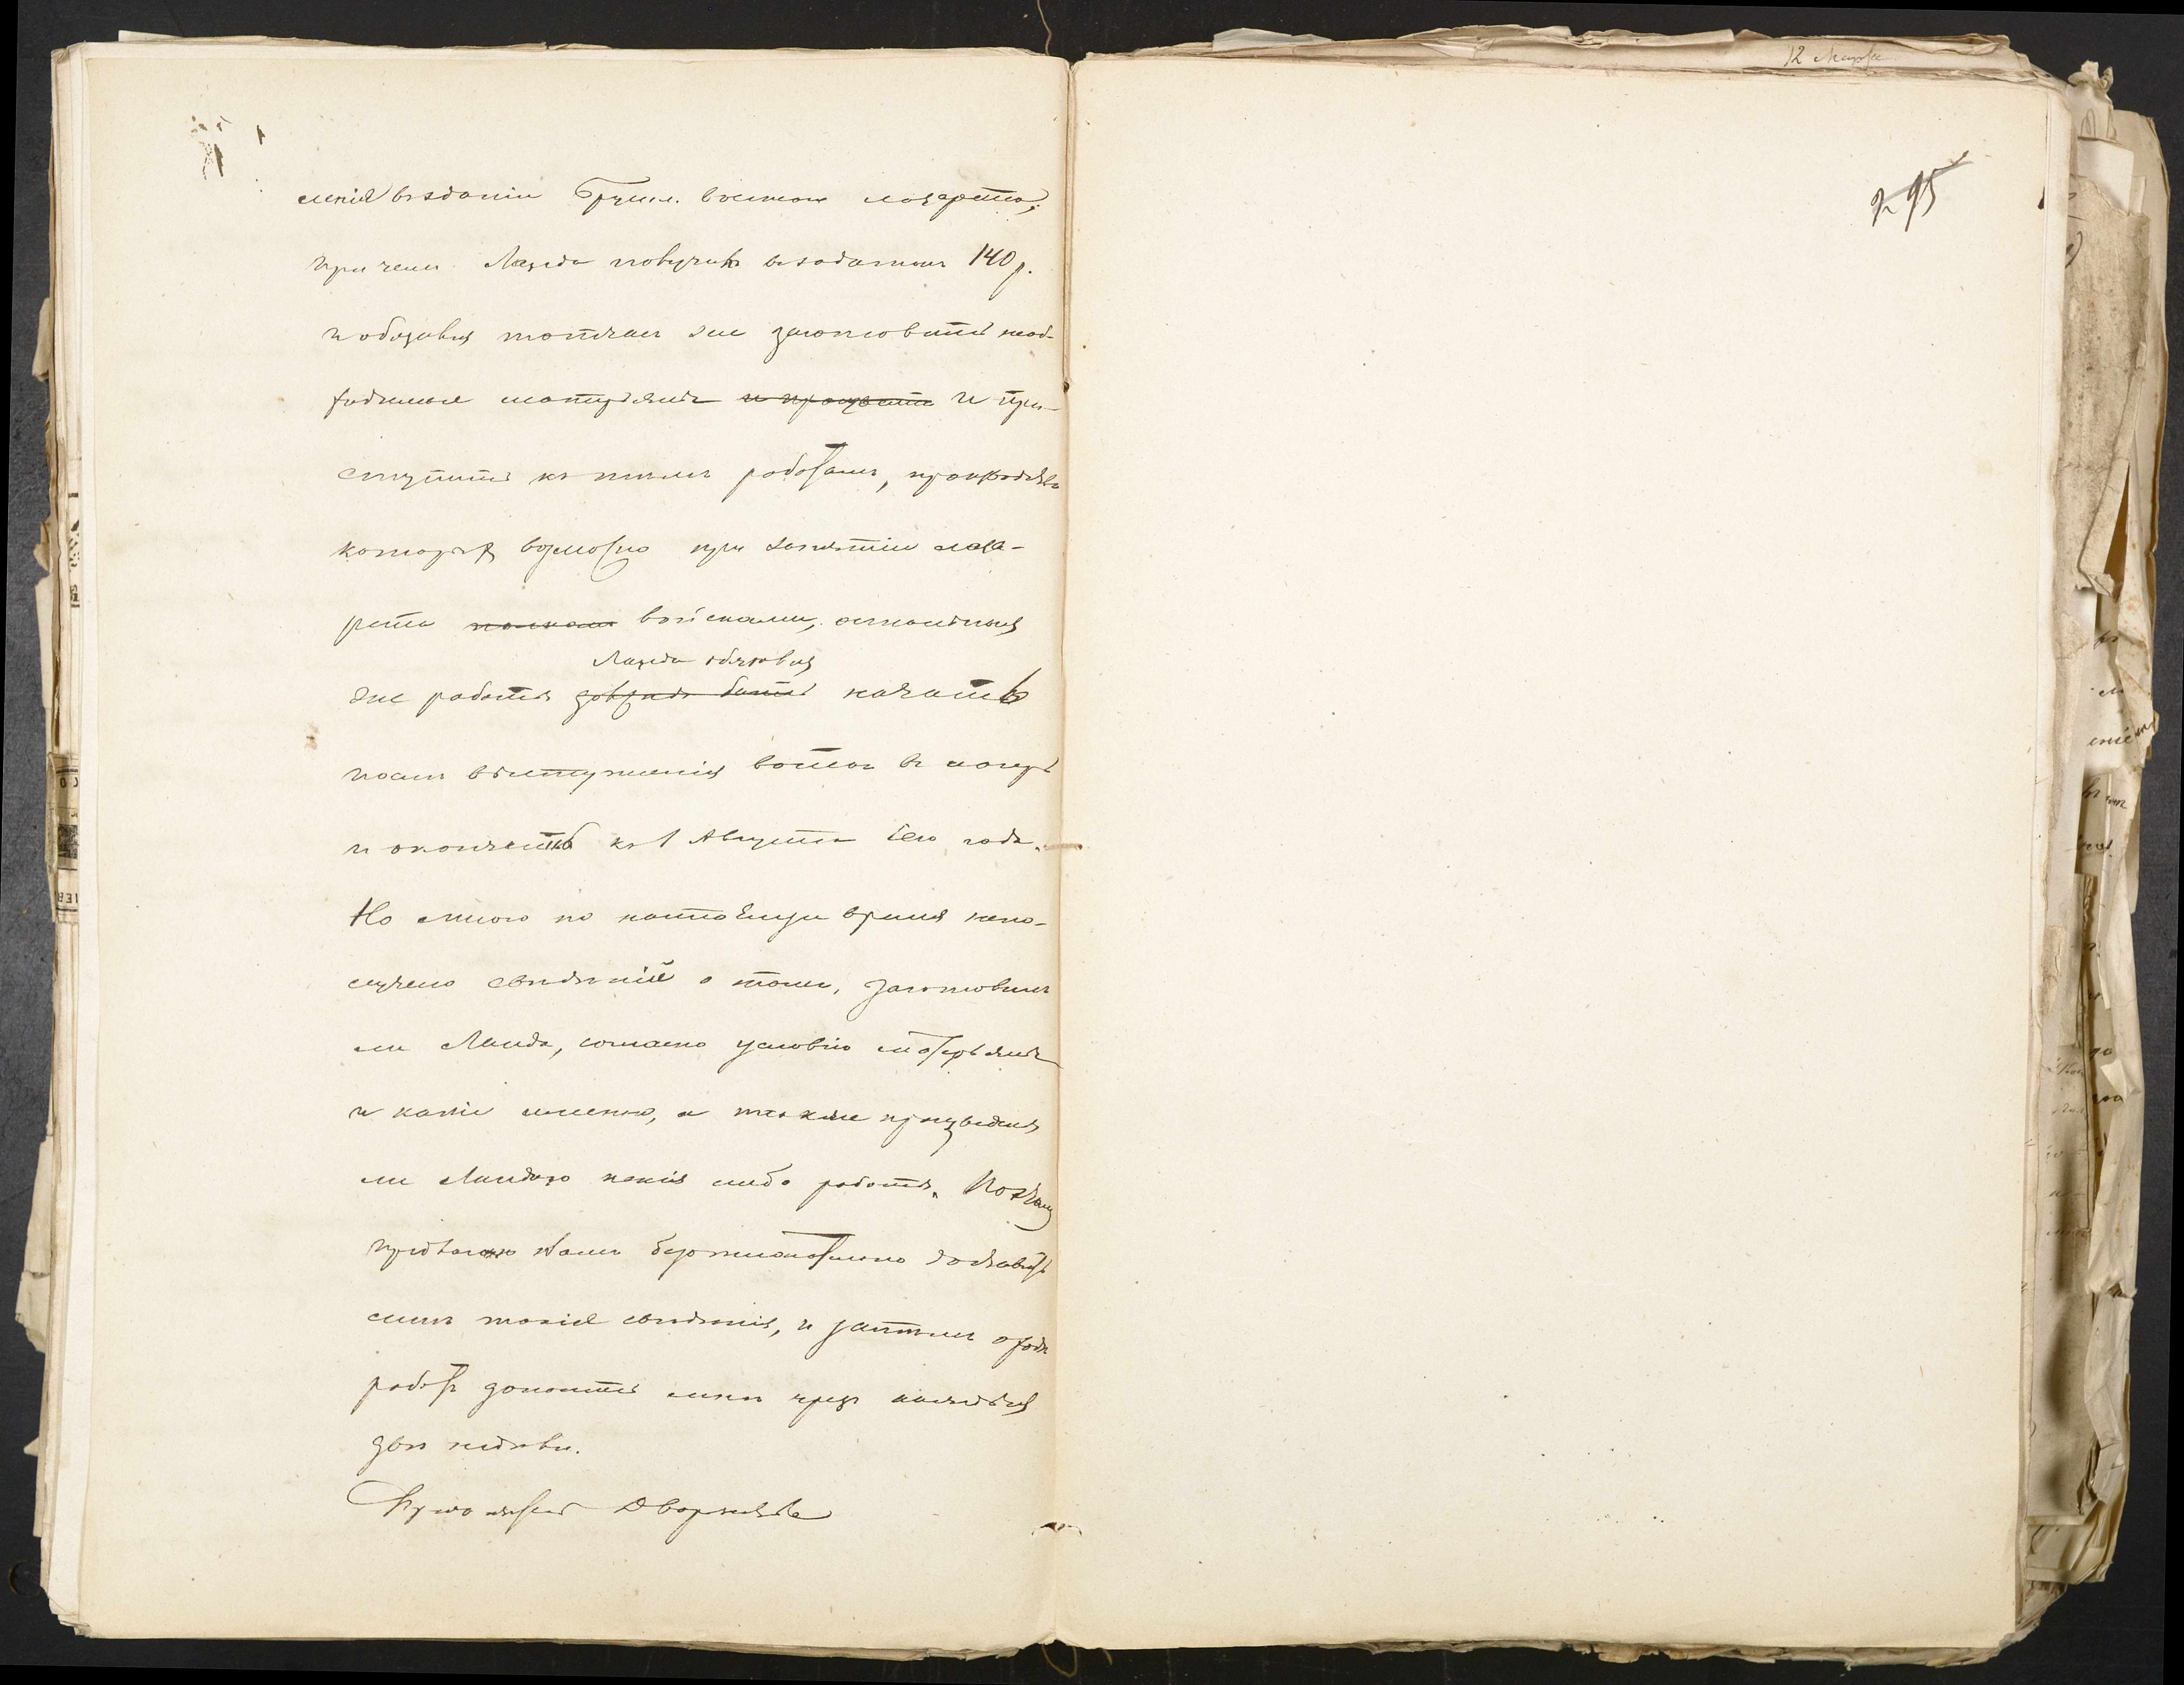 12 Марта
295
ленія въ зданіи Брест. военнаго лазарета;
при чемъ Ланда получилъ въ задатокъ 140 р.
и обязался тотчасъ же заготовить необ-
ходимые матерьялы и при-
ступить къ тѣмъ работамъ, производство
которыхъ возможно при занятіи лаза-
рета войсками, остальныя
Ланда обязался
же работы должны быть начать
послѣ выступленія войскъ въ лагерь
и окончить къ 1 Августа сего года.
Но мною по настоящее время непо-
лучено свѣдѣній о томъ, заготовилъ
ли Ланда, согласно условію матерьялы
и какіе именно, а также произведены
ли Ландою какія либо работы. Почему
предлагаю Вамъ безотлагательно доставить
мнѣ такія свѣдѣнія, и затѣмъ о ходѣ
работъ доносить мнѣ чрезъ каждыя
двѣ недѣли.